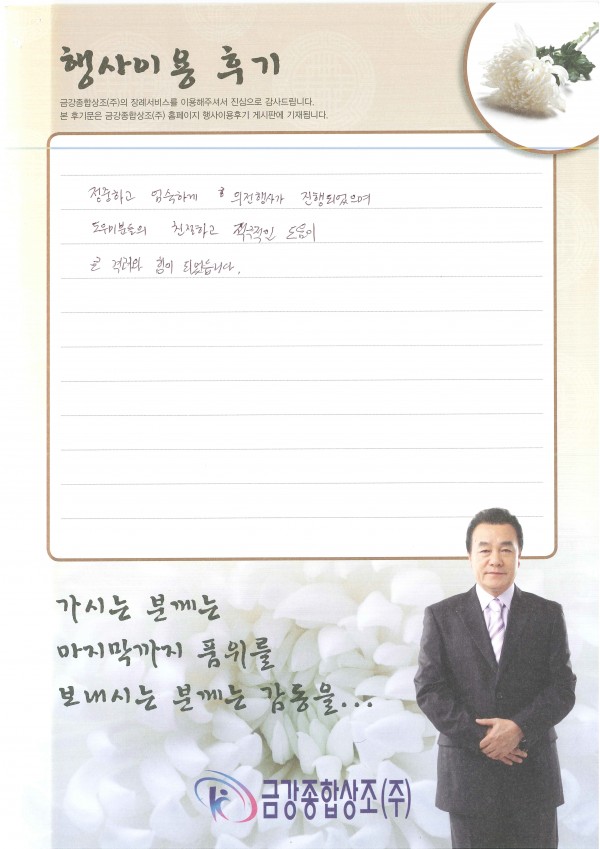 행사이용 후기
금강종합상조(주)의 장례서비스를 이용해주셔서 진심으로 감사드립니다.
본 후기문은 금강종합상조(주) 홈페이지 행사이용후기 게시판에 기재됩니다.
정중하고 엄숙하게 의전행사가 진행되었으며
도우미분들의 친절하고 적극적인 도움이
큰 격려와 힘이 되었습니다.
가시는 분께는
마지막까지 품위를
보내시는 분께는 감동을...
금강종합상조(주)